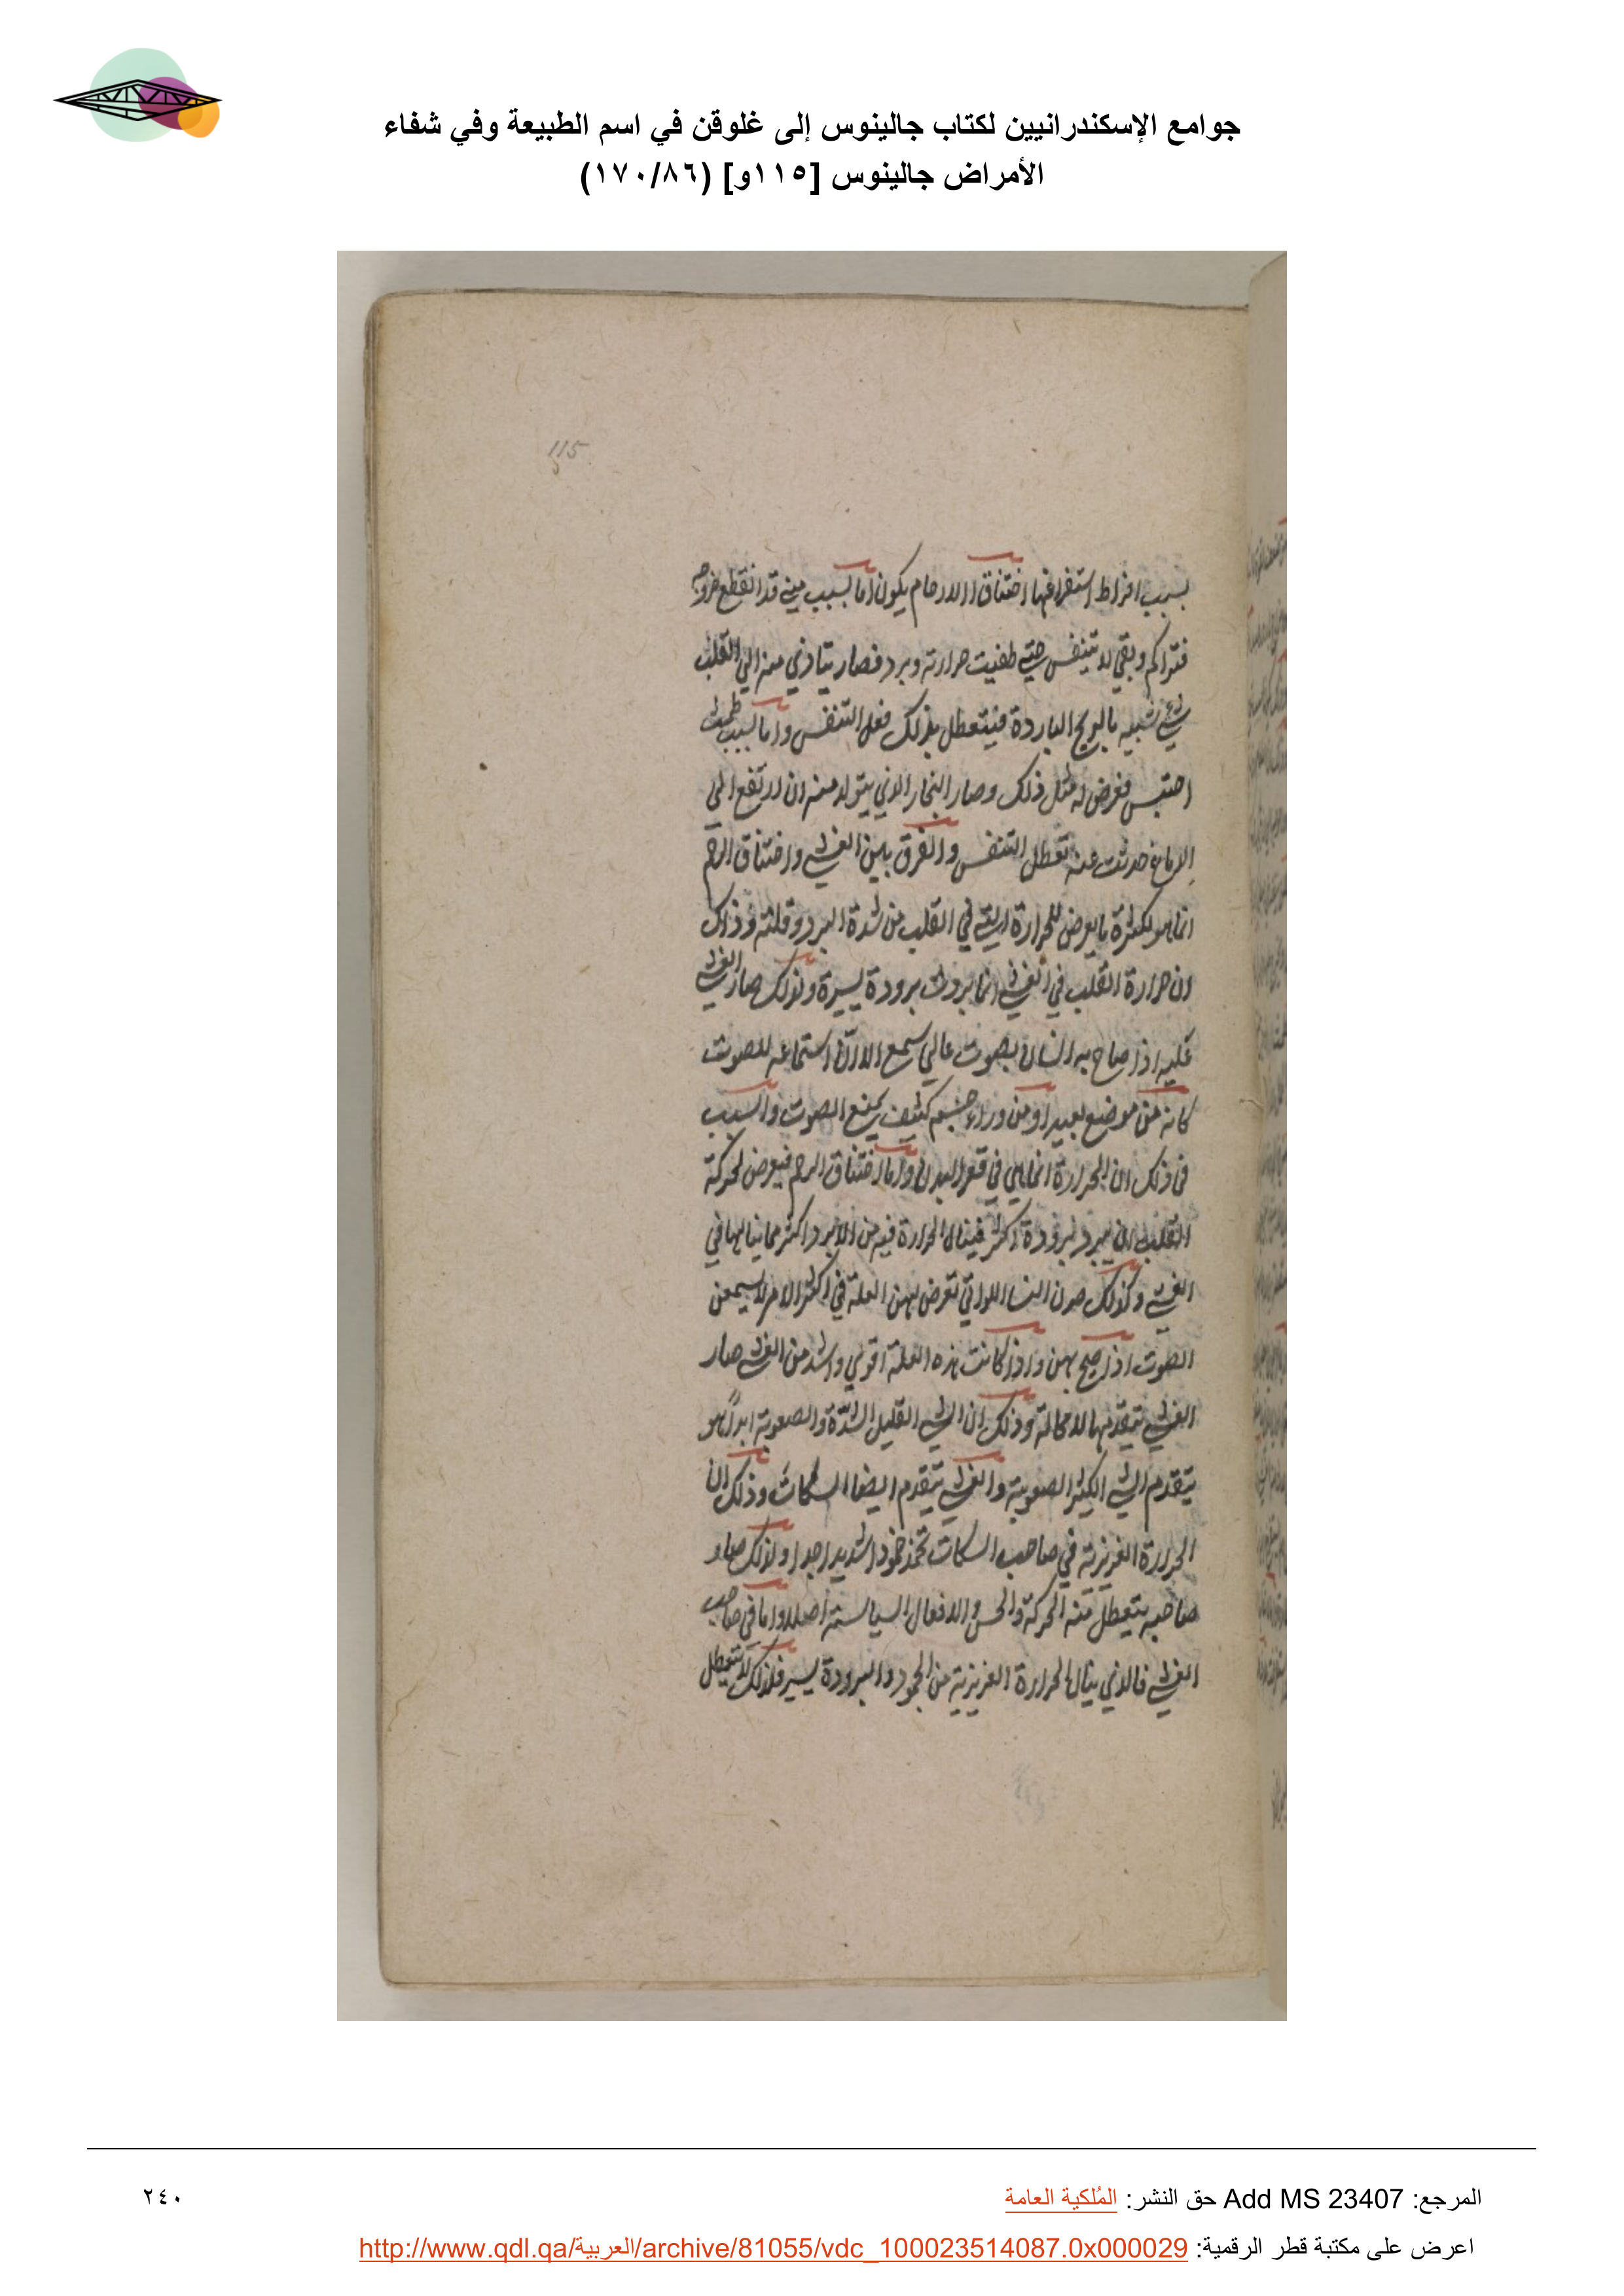 جوامع الإسكندرانيين لكتاب جالينوس إلى غلوقن في اسم الطبيعة وفي شفاء
الأمراض جالينوس [١١٥و] (١٧٠/٨٦)
115
بسبب افراط استفراغها اختناق الارحام يكون اما بسبب مني قد انقطع خروجه
فتراكم وبقي لا يتنفس حتي طفيت حرارته وبرد فصار يتادي منه الي القلب
شي شبيه بالريح الباردة فيتعطل بذلك فعل التنفس واما بسبب طمث
احتبس فعرض له مثل ذلك وصار البخار الذي يتولد منه ان ارتفع الي
الدماغ حدثت عنه تعطل التنفس والفرق بين الغشي واختناق الرحم
انما هو لكثرة ما يعرض للحرارة التي في القلب من شدة البرد وقلته وذلك
ان حرارة القلب في الغشي انما بردت برودة يسيرة ولذلك صار الغشي
عليه اذا صاح به انسان بصوت عالي سمع الا ان استماعه للصوت
كانه من موضع بعيد او من وراء جسم كثيف يمنع الصوت والسبب
في ذلك ان الحرارة انما هي في قعر البدن واما اختناق الرحم فيعرض لحركة
القلب ان يبرد برودة اكثر فينال الحرارة فيه من البرد اكثر مما ينالها في
الغشي وكذلك صرن النسا اللواتي تعرض لهن العلة في اكثر الامر لا يسمعن
الصوت اذا صيح بهن واذا كانت هذه العلة اقوي واشد من الغشي صار
الغشي يتقدمها لا محالة وذلك ان الشي القليل الشدة والصعوبة ابدا هو
يتقدم الشي الكثير الصعوبة والغشي يتقدم ايضا السكات وذلك ان
الحرارة الغريزية في صاحب السكات تخمد خمودا شديدا جدا ولذلك صار
صاحبه يتعطل منه الحركة والحس والافعال السياسية اصلا واما في صاحب
الغشي فالذي ينال الحرارة الغريزية من الجمود والبرودة يسير فلذلك لا تتعطل
المرجع: Add MS 23407 حق النشر: المُلكية العامة
٢٤٠
اعرض على مكتبة قطر الرقمية: http://www.qdl.qa/العربية/archive/81055/vdc_100023514087.0x000029